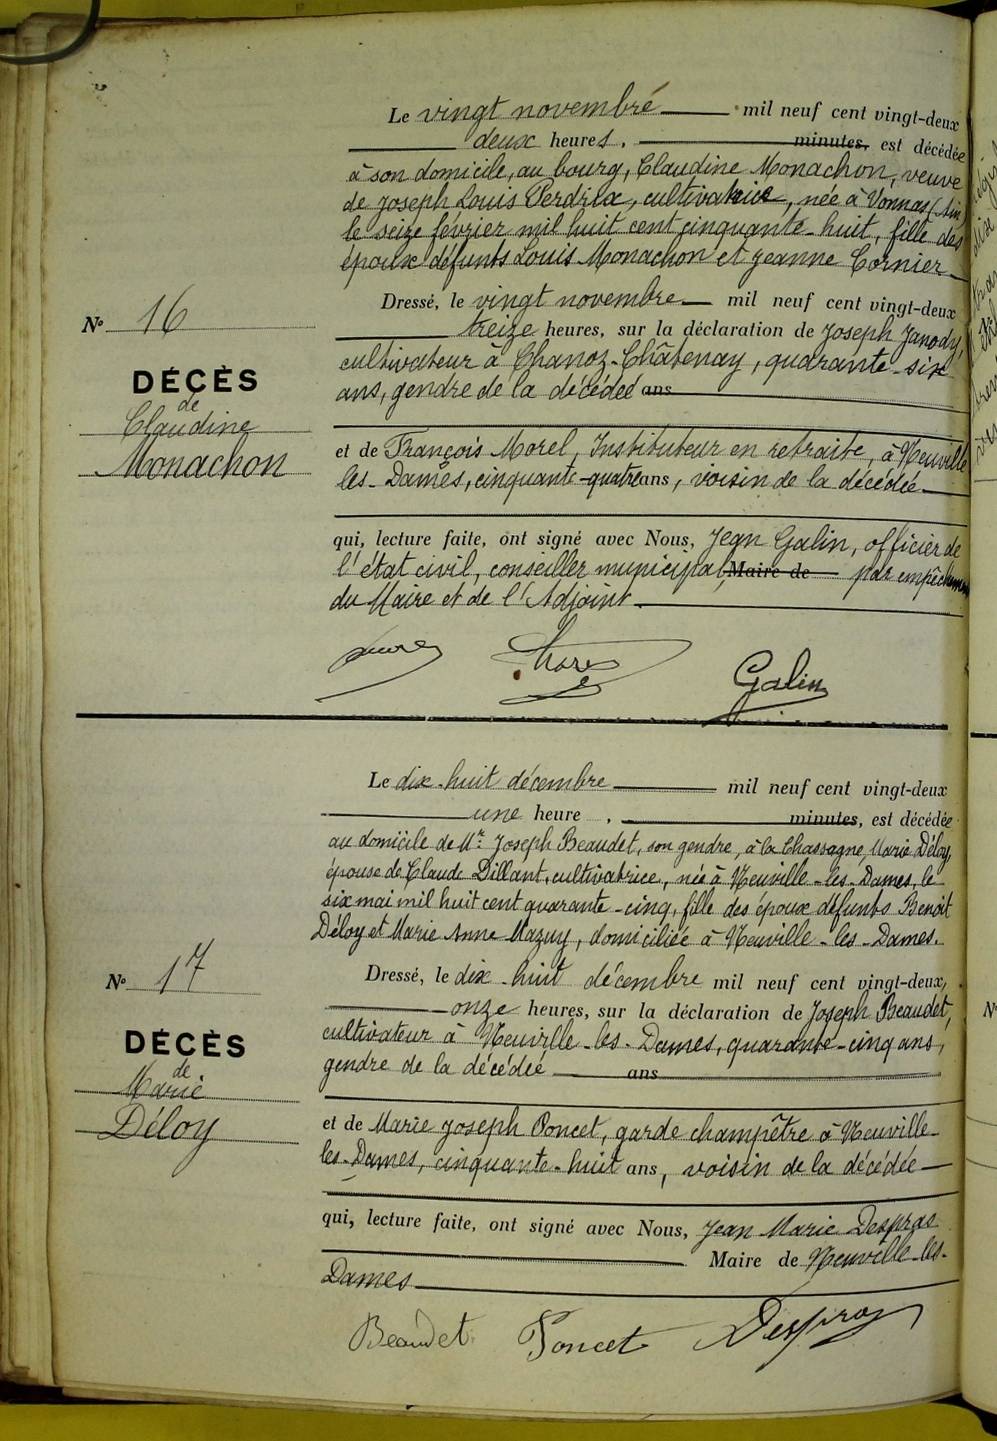 Le vingt novembre mil neuf cent vingt-deux
deux heures, minutes, est décédée
à son domicile, au bourg, Claudine Monachon, veuve
de Joseph Louis Perdrix, cultivatrice, née à Vonnas (Ain
le seize février mil huit cent cinquante-huit, fille des
époux défunts Louis Monachon et Jeanne Cornier
Dressé, le vingt novembre mil neuf cent vingt-deux
treize heures, sur la déclaration de Joseph Janody,
cultivateur à Chanoz-Châtenay, quarante-six
ans, gendre de la décédée ans
et de François Morel, Instituteur en retraite, à Neuville
les-Dames, cinquante-quatre ans, voisin de la décédée
qui, lecture faite, ont signé avec Nous, Jean Galin, officier de
l'état civil, conseiller municipal, Maire de par empêchement
du Maire et de l'Adjoint
Galin
N° 16
DÉCÈS
de
Claudine
Monachon
Le dix-huit décembre mil neuf cent vingt-deux
une heure, minutes, est décédée
au domicile de Mr. Joseph Beaudet, son gendre, à la Chassagne, Marie Déloy,
épouse de Claude Dillant, cultivatrice, née à Neuville-les-Dames, le
six mai mil huit cent quarante-cinq, fille des époux défunts Benoit
Déloy et Marie Anne Mazuy, domiciliée à Neuville-les-Dames.
Dressé, le dix-huit décembre mil neuf cent vingt-deux,
onze heures, sur la déclaration de Joseph Beaudet,
cultivateur à Neuville-les-Dames, quarante-cinq ans,
gendre de la décédée ans
et de Marie Joseph Poncet, garde champêtre à Neuville-
les-Dames, cinquante-huit ans, voisin de la décédée
qui, lecture faite, ont signé avec Nous, Jean Marie Despras
Maire de Neuville-les-
Dames
Beaudet Poncet Despras
N° 17
DÉCÈS
de
Marie
Déloy